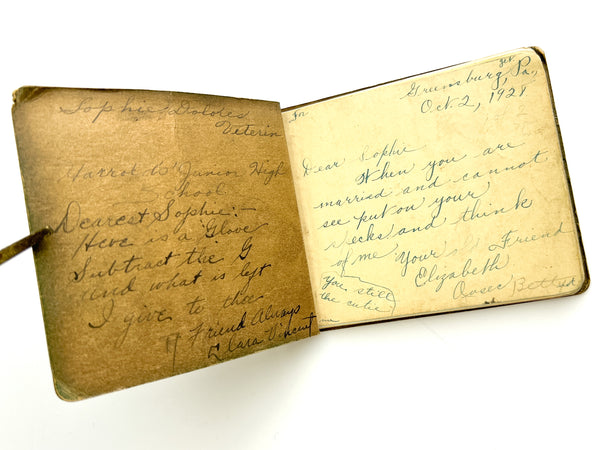 Sophie Dolores
Veterin
Harrot to Junior High
School
Dearest Sophie:-
Here is a Glove
Subtract the G
and what is left
I give to thee
A Friend Always
Clara Vincent
Greensburg, Pa,
Oct. 2, 1928
Dear Sophie
When you are
married and cannot
see put on your
specks and think
of me Your Friend
Elizabeth
You still
the cutie